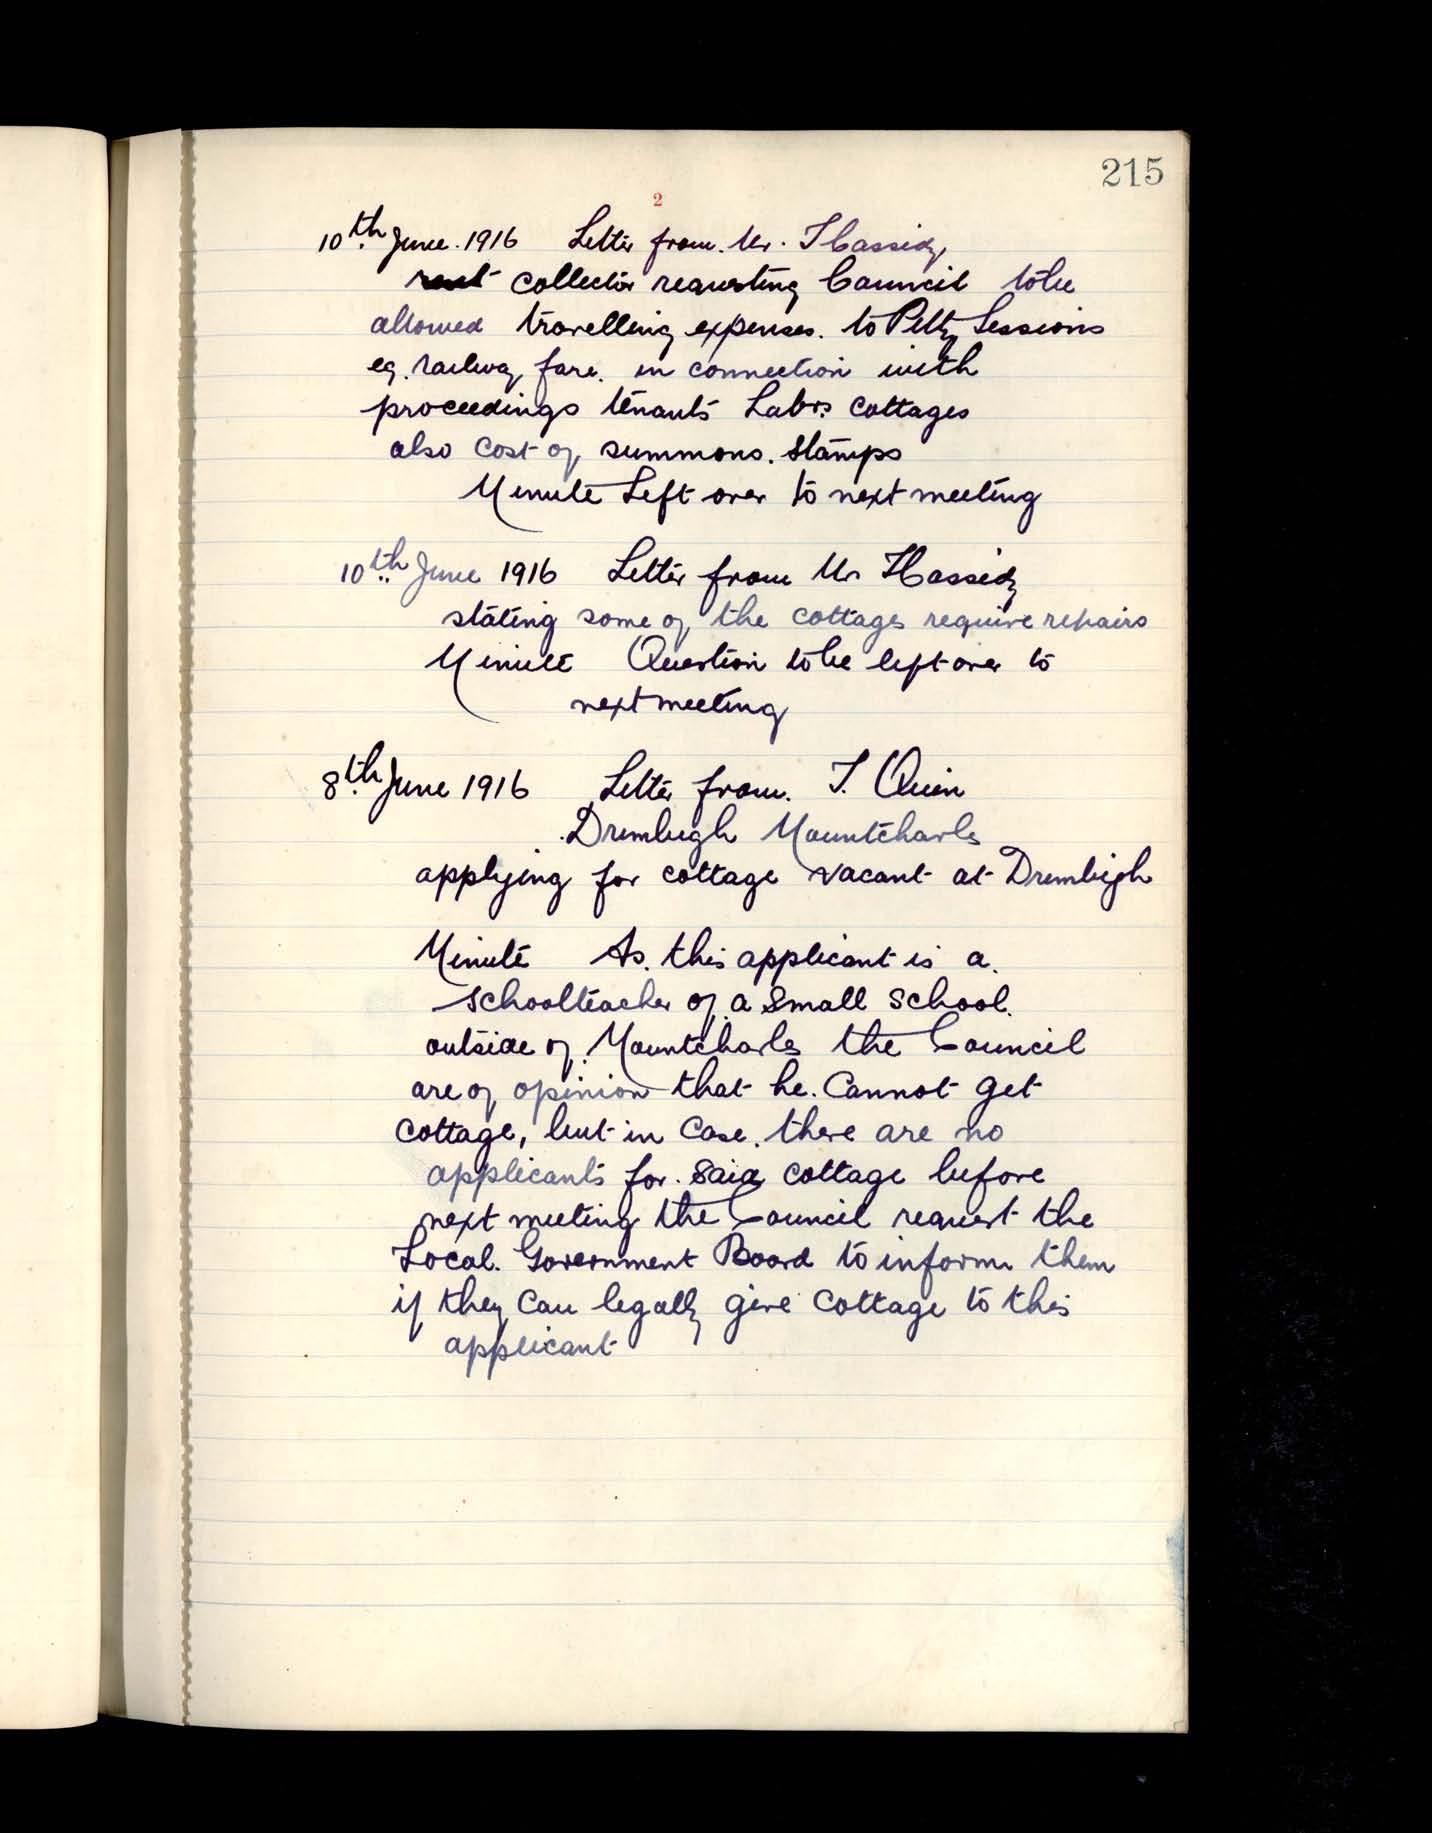 215
2
10th June. 1916 Letter from. Mr. T Cassidy
rent collector requesting Council to be
allowed travelling expenses. to Petty Sessions
eg. railway fare. in connection with
proceedings tenants Labrs cottages
also cost of summons. Stamps
Minute Left over to next meeting
10th June 1916 Letter from Mr T Cassidy
stating some of the cottages require repairs
Minute Question to be left over to
next meeting
8th June 1916 Letter from. T. Quin
Drumbigh Mountcharles
applying for cottage vacant at Drumbigh
Minute As. this applicant is a.
schoolteacher of a small school.
outside of Mountcharles the Council
are of opinion that he. cannot get
cottage, but in case. there are no
applicants for. said cottage before
next meeting the Council request the
Local. Government Board to inform them
if they can legally give cottage to this
applicant